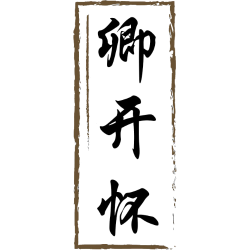 卿开怀